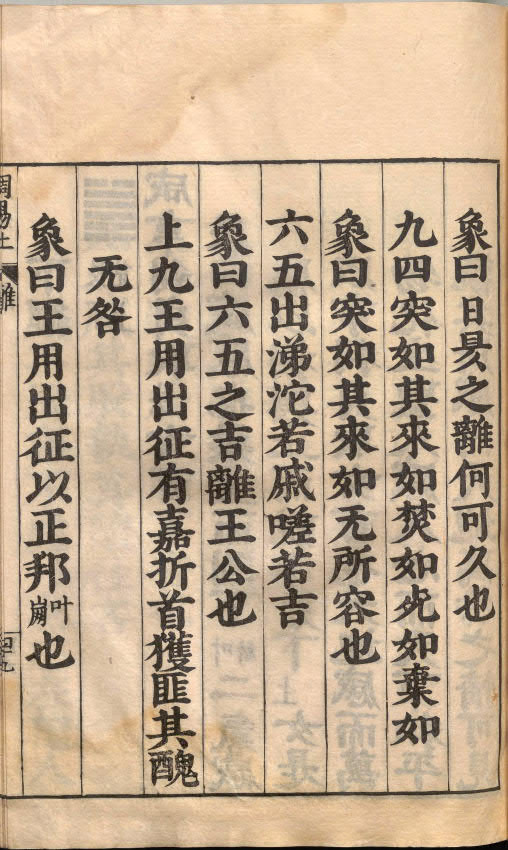 象曰日昃之離何可久也
九四突如其來如焚如死如棄如
象曰突如其來如无所容也
六五出涕沱若戚嗟若吉
象曰六五之吉離王公也
上九王用出征有嘉折首獲匪其醜
无咎
象曰王用出征以正邦叶崩也
周易上 離 四十九